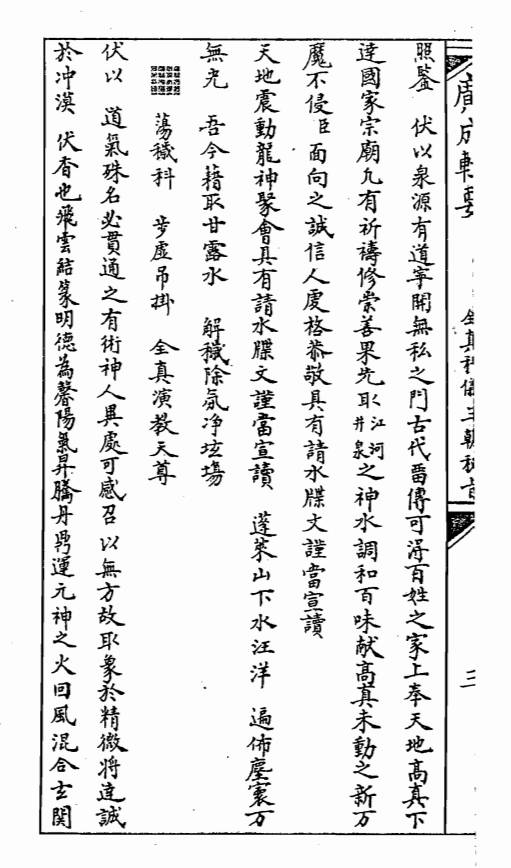 照鑒　伏以泉源有道寧開無私之門古代畱傳可淂百姓之家上奉天地高真下
達國家宗廟凢有祈禱修崇善果先取江河井泉之神水調和百味献高真未動之新万
魔不侵臣面向之誠信人虔格恭敬具有請水牒文謹當宣讀
天地震動龍神聚會具有請水牒文謹當宣讀　蓬萊山下水汪洋　遍佈塵寰万
無光　吾今藉取甘露水　解穢除氛净坛塲
蕩穢科　步虛吊掛　全真演教天尊
伏以　道氣殊名必貫通之有術神人異處可感召以無方故取象於精微将達誠
於冲漠　伏香也飛雲結篆明德為馨陽氣昇騰丹鼎運元神之火回風混合玄関
廣成
三